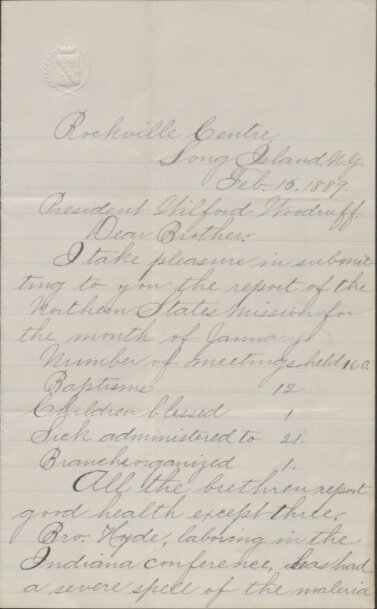 Rockville Centre
Long Island, N.Y.
Feb. 15, 1889.
President Wilford Woodruff.
Dear Brother:
I take pleasure in submit
ting to you the report of the
Northern States Mission for
the month of January.
Number of meetings held 160.
Baptisms 12
Children blessed 1
Sick administered to 21.
Branches organized 1.
All the brethren report
good health except three.
Bro. Hyde, laboring in the
Indiana conference, has had
a severe spell of the maleria